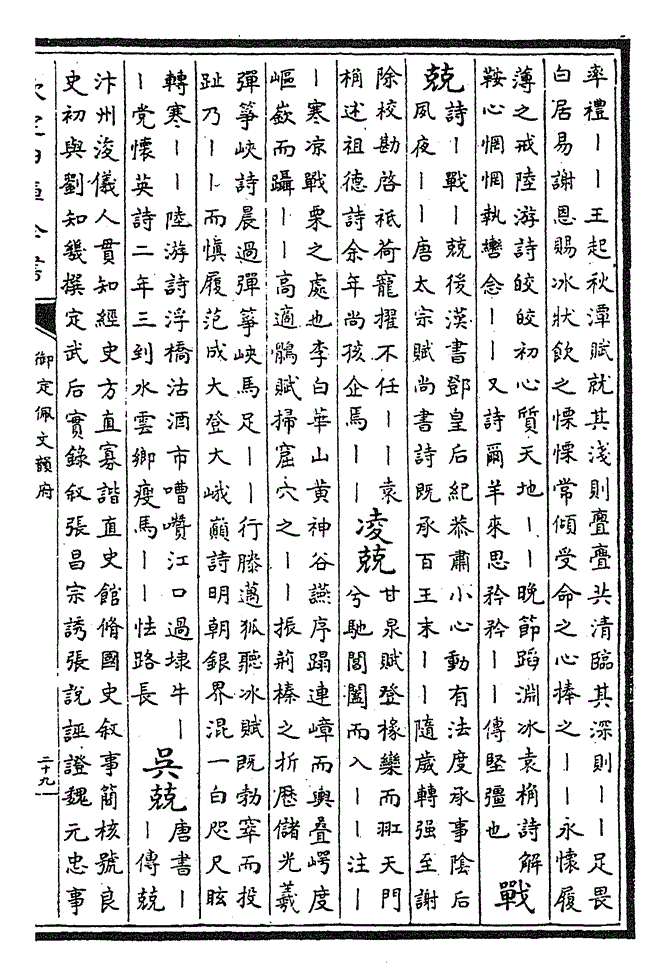 率禮｜｜王起秋潭賦就其淺則亹亹共清臨其深則｜｜足畏
白居易謝恩賜冰狀飲之慄慄常傾受命之心捧之｜｜永懷履
薄之戒陸游詩皎皎初心質天地｜｜晚節蹈淵冰袁桷詩解
鞍心惘惘執轡念｜｜又詩爾羊來思矜矜｜｜傳堅彊也
戰
兢
詩｜戰｜兢後漢書鄧皇后紀恭肅小心動有法度承事陰后
夙夜｜｜唐太宗賦尚書詩既承百王末｜｜隨歲轉强至謝
除校勘啓祇荷寵擢不任｜｜袁
桷述祖德詩余年尚孩企焉｜｜
凌兢
甘泉賦登椽欒而羾天門
兮馳閶闔而入｜｜注｜
｜寒涼戰栗之處也李白華山黄神谷讌序蹋連嶂而輿疊崿度
嶇嶔而躡｜｜高適鶻賦掃窟穴之｜｜振荊榛之折厯儲光羲
彈箏峽詩晨過彈箏峽馬足｜｜行滕邁狐聽冰賦既勃窣而投
趾乃｜｜而慎履范成大登大峨巔詩明朝銀界混一白咫尺眩
轉寒｜｜陸游詩浮橋沽酒市嘈囋江口過埭牛｜
｜党懷英詩二年三到水雲鄉瘦馬｜｜怯路長
吳兢
唐書｜
｜傳兢
汴州浚儀人貫知經史方直寡諧直史館脩國史叙事簡核號良
史初與劉知幾撰定武后實錄叙張昌宗誘張說誣證魏元忠事
御定佩文韻府
二十九